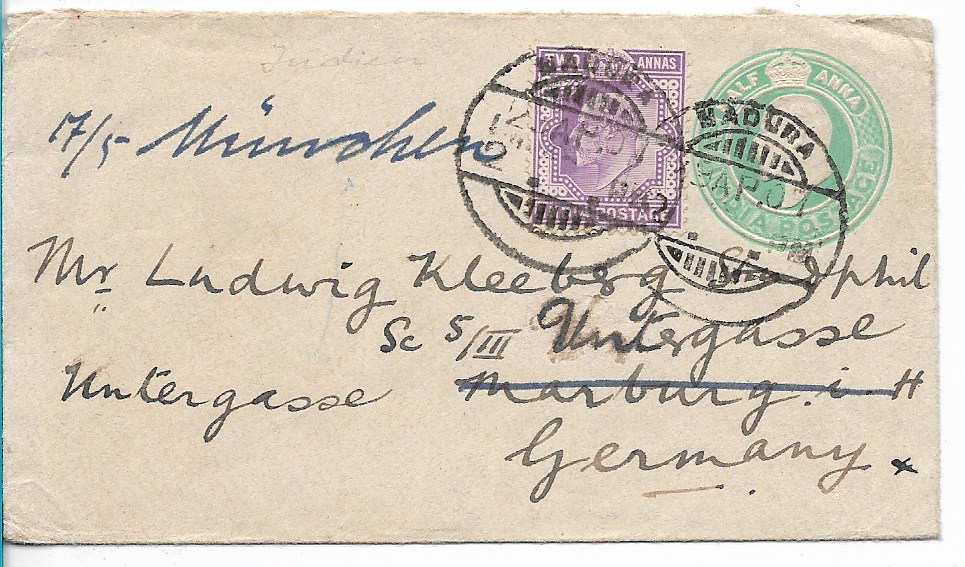 Indien
17/5 München
TWO ANNAS
POSTAGE
MADURA
HALF ANNA
INDIA POSTAGE
MADURA
AP. 07
Mr Ludwig Kleeberg phil
Sc 5/III Untergasse
Untergasse Marburg i. H
Germany